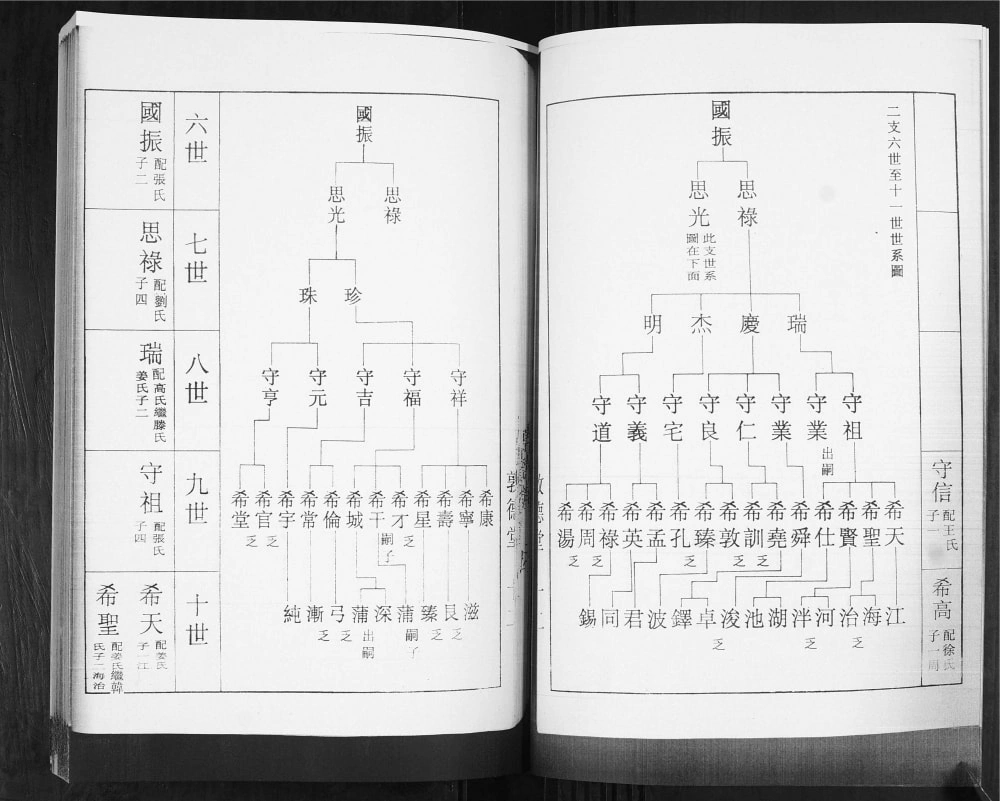 二支六世至十一世世系圖
國振
思祿
思光
此支世系
圖在下面
瑞
慶
杰
明
守祖
守業
出嗣
守業
守仁
守良
守宅
守義
守道
希天
希聖
希賢
希仕
希舜
希堯
乏
希訓
乏
希敦
希臻
希孔
乏
希孟
希英
希祿
希周
乏
希湯
乏
江
海
治
乏
河
泮
乏
湖
池
浚
乏
卓
鐸
波
君
同
錫
守信
配王氏
子一
希高
配徐氏
子一周
敦德堂
國振
思祿
思光
珍
珠
守祥
守福
守吉
守元
守亨
希康
希寧
希壽
希星
希才
乏
希干
嗣子
希城
希倫
希常
希宇
希官
乏
希堂
乏
滋
艮
乏
臻
乏
蒲
嗣子
深
蒲
出嗣
乏
弓
乏
漸
純
六世
七世
八世
九世
十世
國振
配張氏
子二
思祿
配劉氏
子四
瑞
配高氏繼滕氏
姜氏子二
守祖
配張氏
子四
希天
配姜氏
子一江
希聖
配姜氏繼韓
氏子二海治